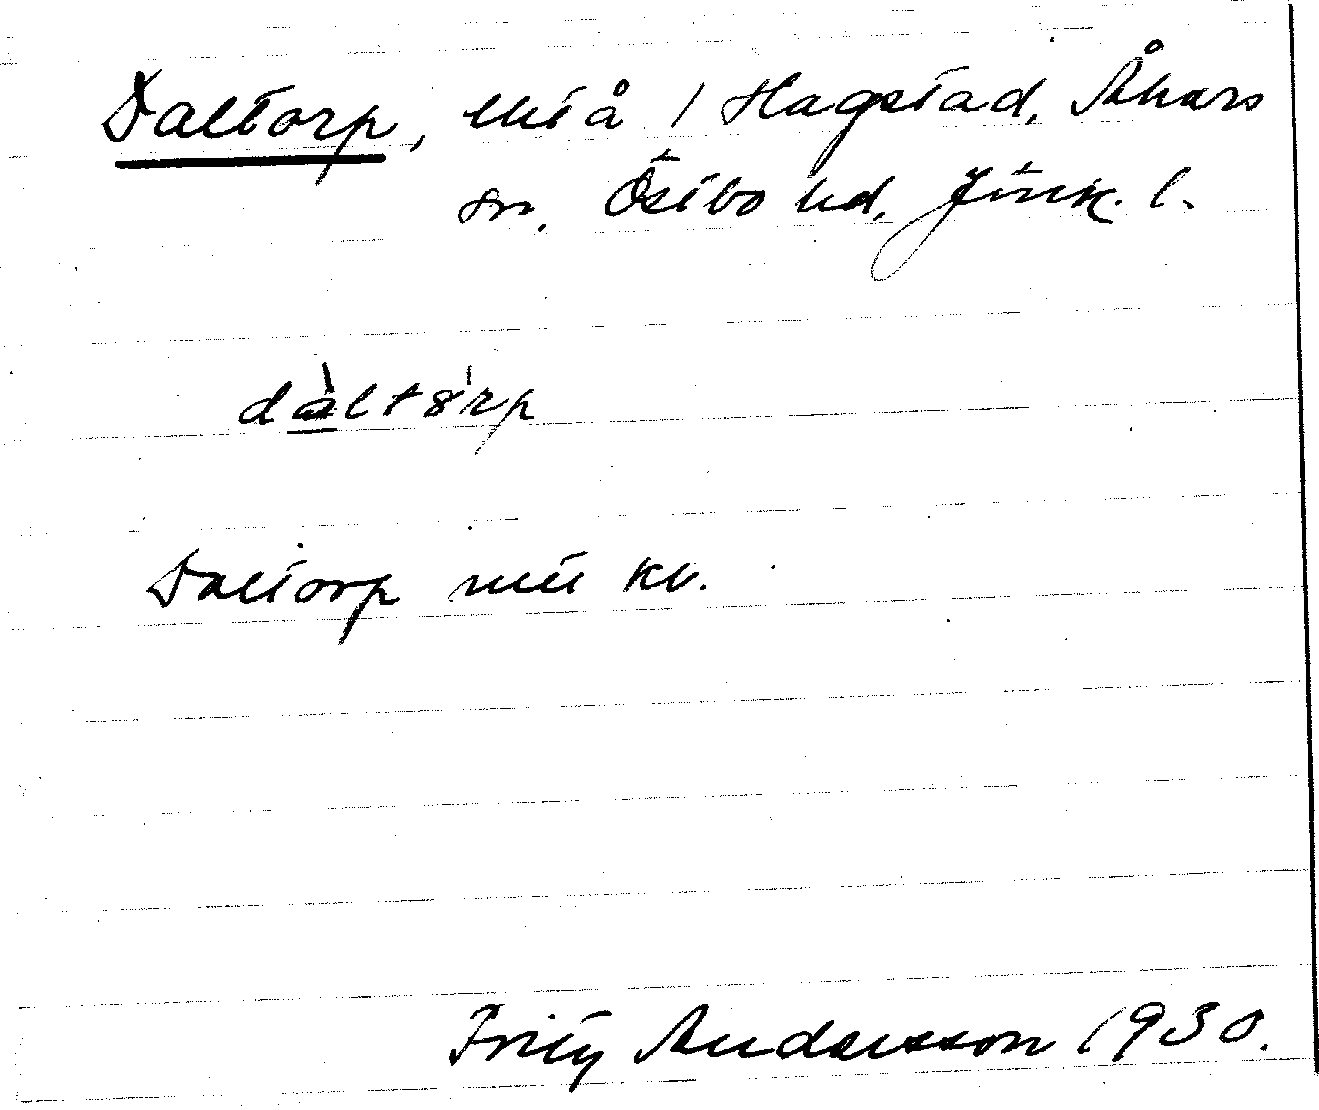 Daltorp, utst å / Hagstad, Åkers
sn, Östbo hd, Jönk. l.
dàltórp
Daltorp mtl kv.
Fritz Andersson 1930.